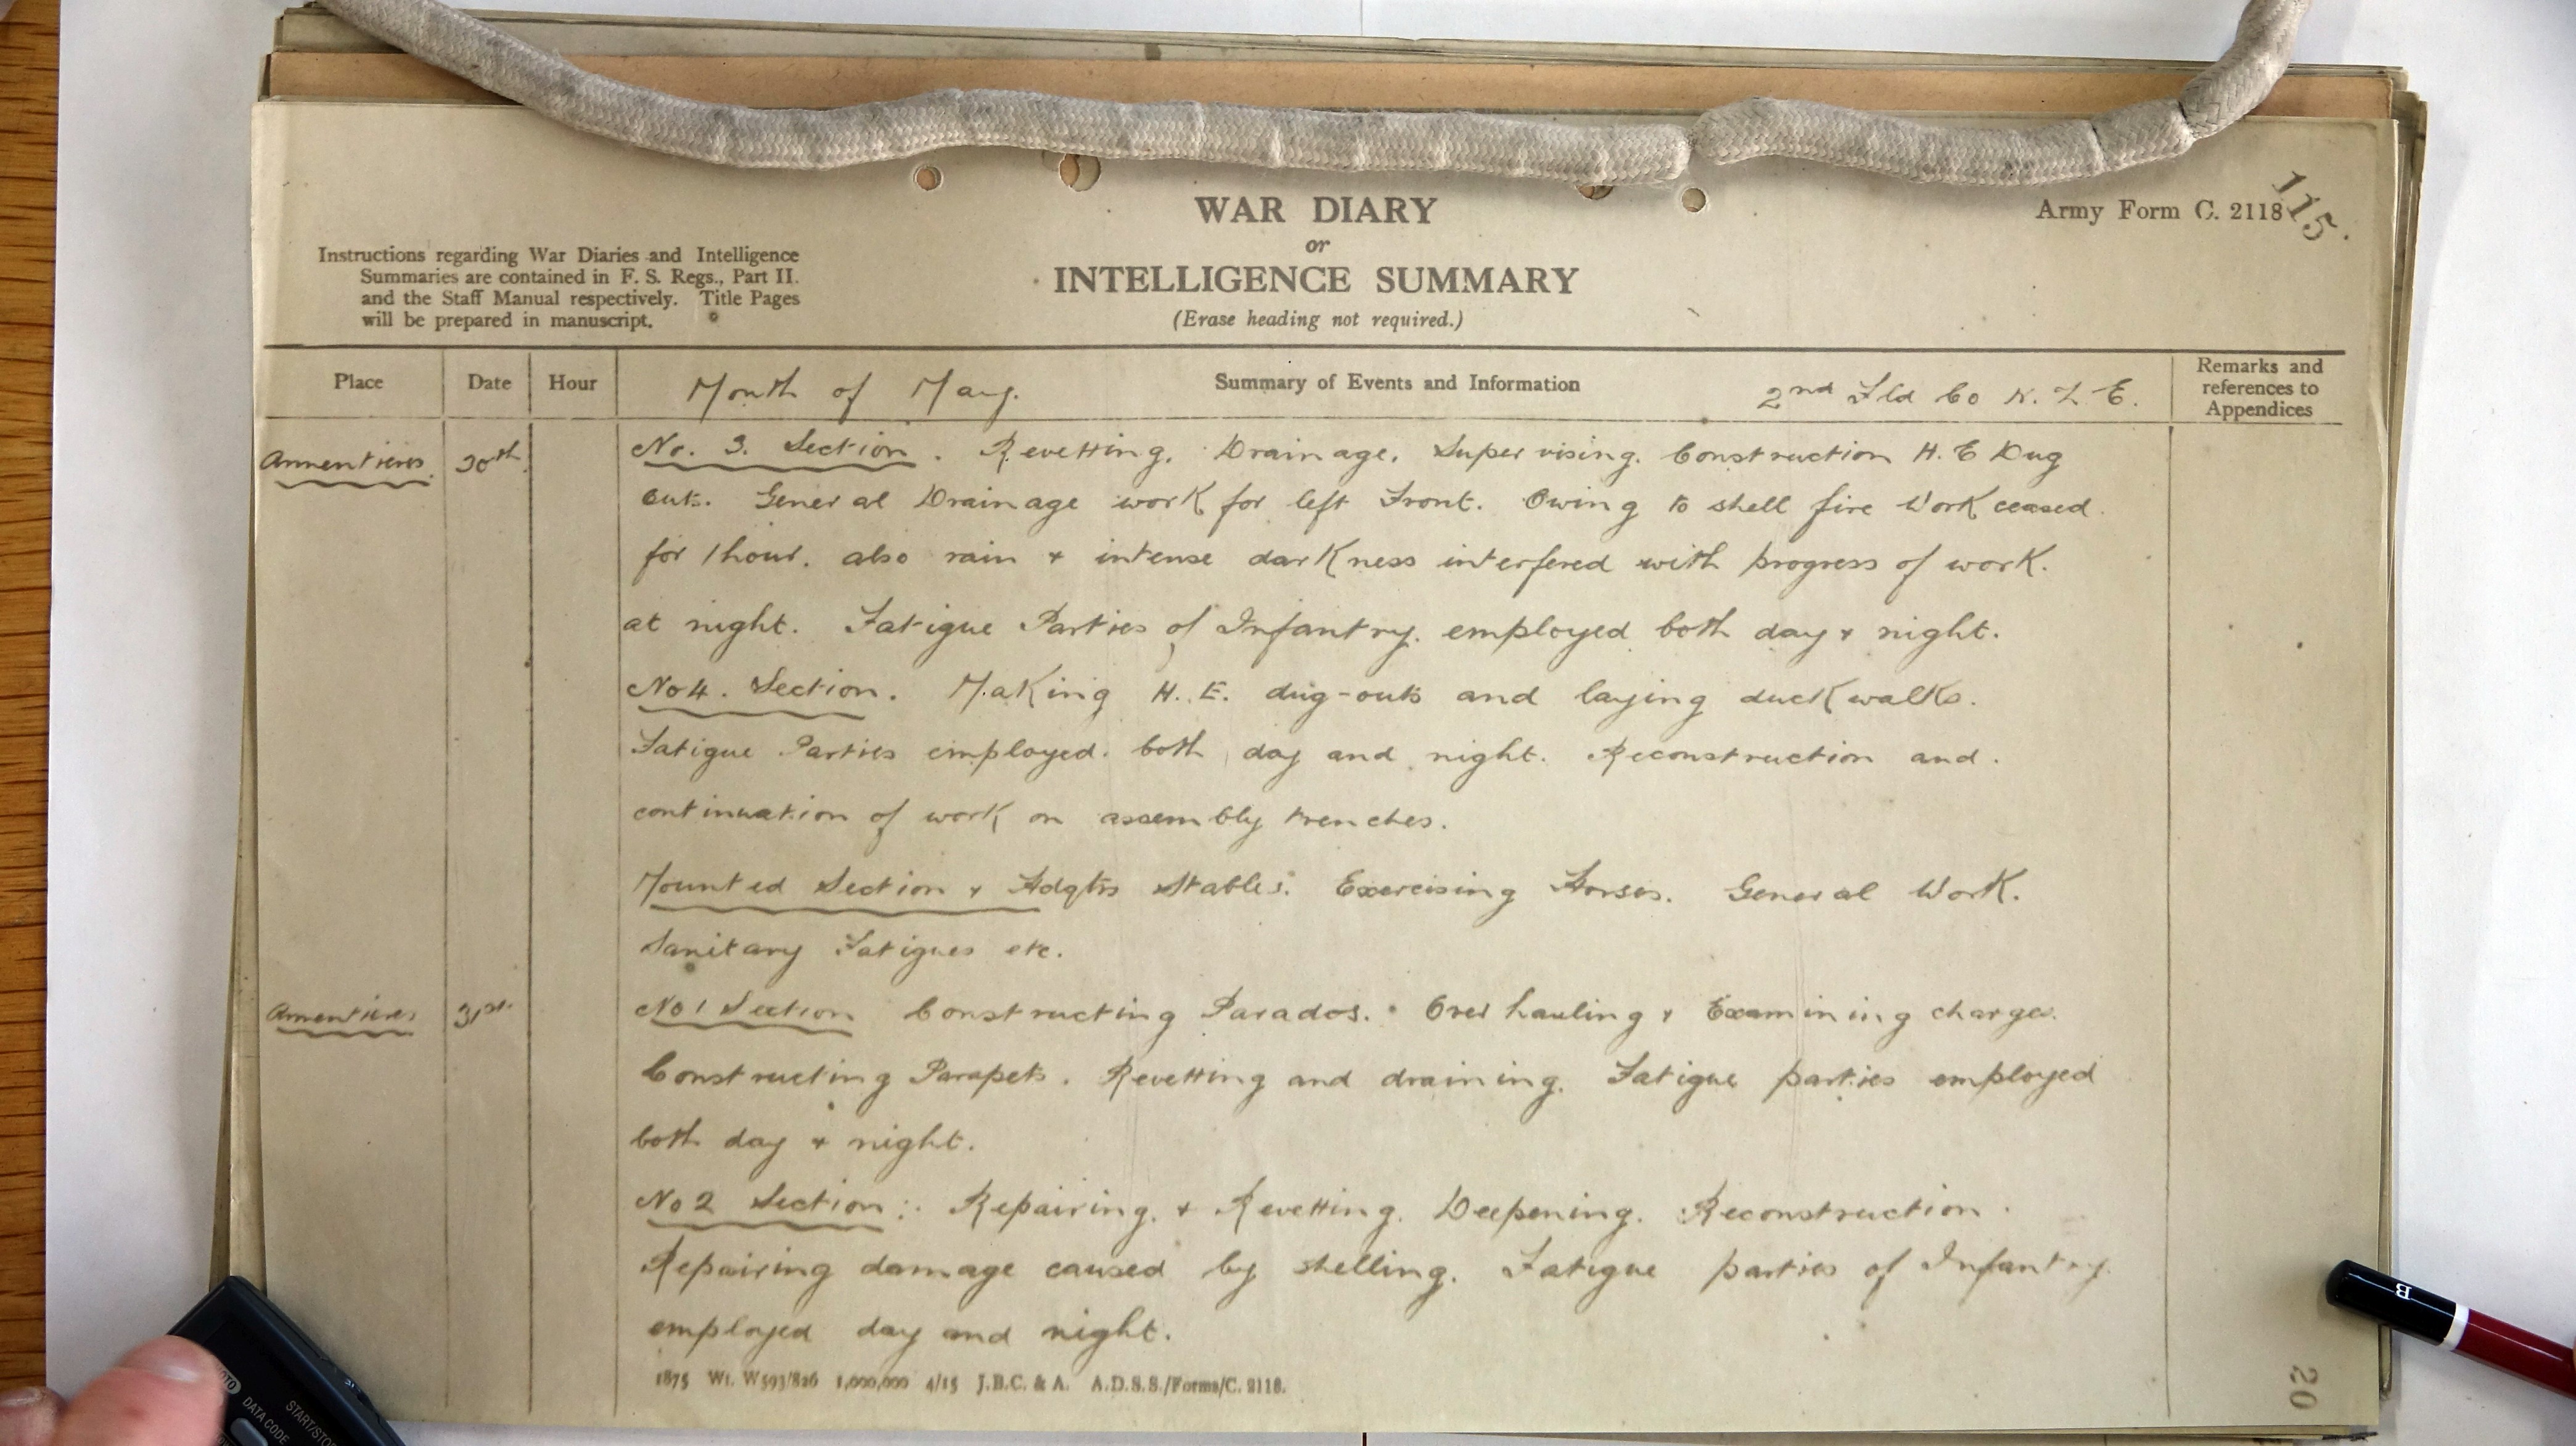 WAR DIARY
or
INTELLIGENCE SUMMARY
(Erase heading not required.)
Army Form C. 2118
115.
Instructions regarding War Diaries and Intelligence
Summaries are contained in F. S. Regs., Part II.
and the Staff Manual respectively. Title Pages
will be prepared in manuscript.
Place Date Hour Month of May. Summary of Events and Information 2nd Fld Co N. Z. E. Remarks and
references to
Appendices
Armentieres. 30th No. 3. Section. Revetting. Drainage. Supervising. Construction H. E Dug
outs. General Drainage work for left Front. Owing to shell fire Work ceased.
for 1 hour. also rain + intense darkness interfered with progress of work.
at night. Fatigue Parties of Infantry. employed both day + night.
No 4. Section. Making H. E. dug-outs and laying duck walks.
Fatigue Parties employed. both day and night. Reconstruction and.
continuation of work on assembly trenches.
Mounted Section + Hdqtrs Stables. Exercising Horses. General Work.
Sanitary Fatigues etc.
Armentieres 31st. No 1 Section Constructing Parados. Over hauling + Examining charges.
Constructing Parapets. Revetting and draining. Fatigue parties employed
both day + night.
No 2 Section: Repairing. + Revetting. Deepening. Reconstruction.
Repairing damage caused by shelling. Fatigue parties of Infantry.
employed day and night.
1875 Wt. W593/826 1,000,000 4/15 J.B.C. & A. A.D.S.S./Forms/C. 2118.
20
B
DATA CODE